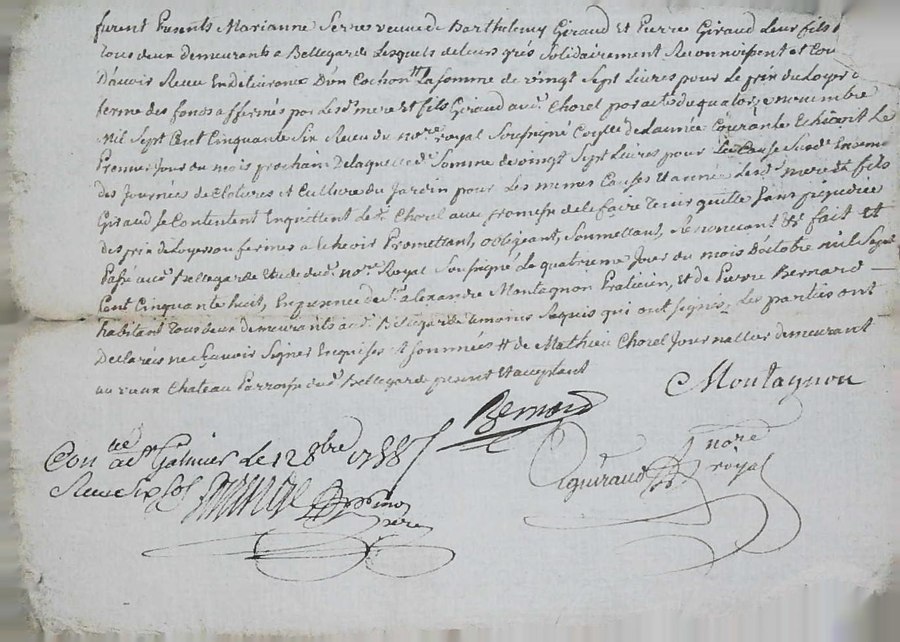 furent Presents Marianne Serre veuve de Barthelemy Giraud et Pierre Giraud Leur fils
tous deux demeurants a Bellegarde Lesquels de leurs grés Solidairement Reconnoissent et
D'avoir Receu La somme de vingt Sept Livres pour Le prix du Loyer
ferme des fonds affermés par Lesd. mere et fils Giraud aud. Chorel par acte du quatorze novembre
Mil Sept Cent Cinquante Six Receu du nore. royal Soussigné De L'année Courante Echéant Le
Premier Jour du mois prochain De laquelle d. Somme de vingt Sept Livres pour La Cause Susd.
des Journées de Clotures et Culture du Jardin pour Les memes Causes et année Lesd. mere et fils
Giraud Se Contentent Enquittent Led. Chorel avec promesse de le faire tenir quitte Sans prejudice
des prix de Loyer ou fermes a Echeoir Promettant, obligeant, Soumettant, Renonçant &c. fait et
Passé aud. Bellegarde Etude dud. nore. Royal Soussigné Le quatrieme Jour du mois D'octobre mil Sept
Cent Cinquante huit, En presence de Sr. alexandre Montagnon Praticien, et de Pierre Bernard
habitant tous deux demeurants aud. Bellegarde temoins Requis qui ont Signé, Les parties ont
Declarées ne Sçavoir Signer Enquises et Sommées # de Mathieu Chorel Journallier demeurant
au vieux Chateau Parroisse dud. Bellegarde present et acceptant
Bernard
Montagnon
Con lé a St. Galmier le 12 8bre 1758
Receu six sols
Aguiraud nore royal